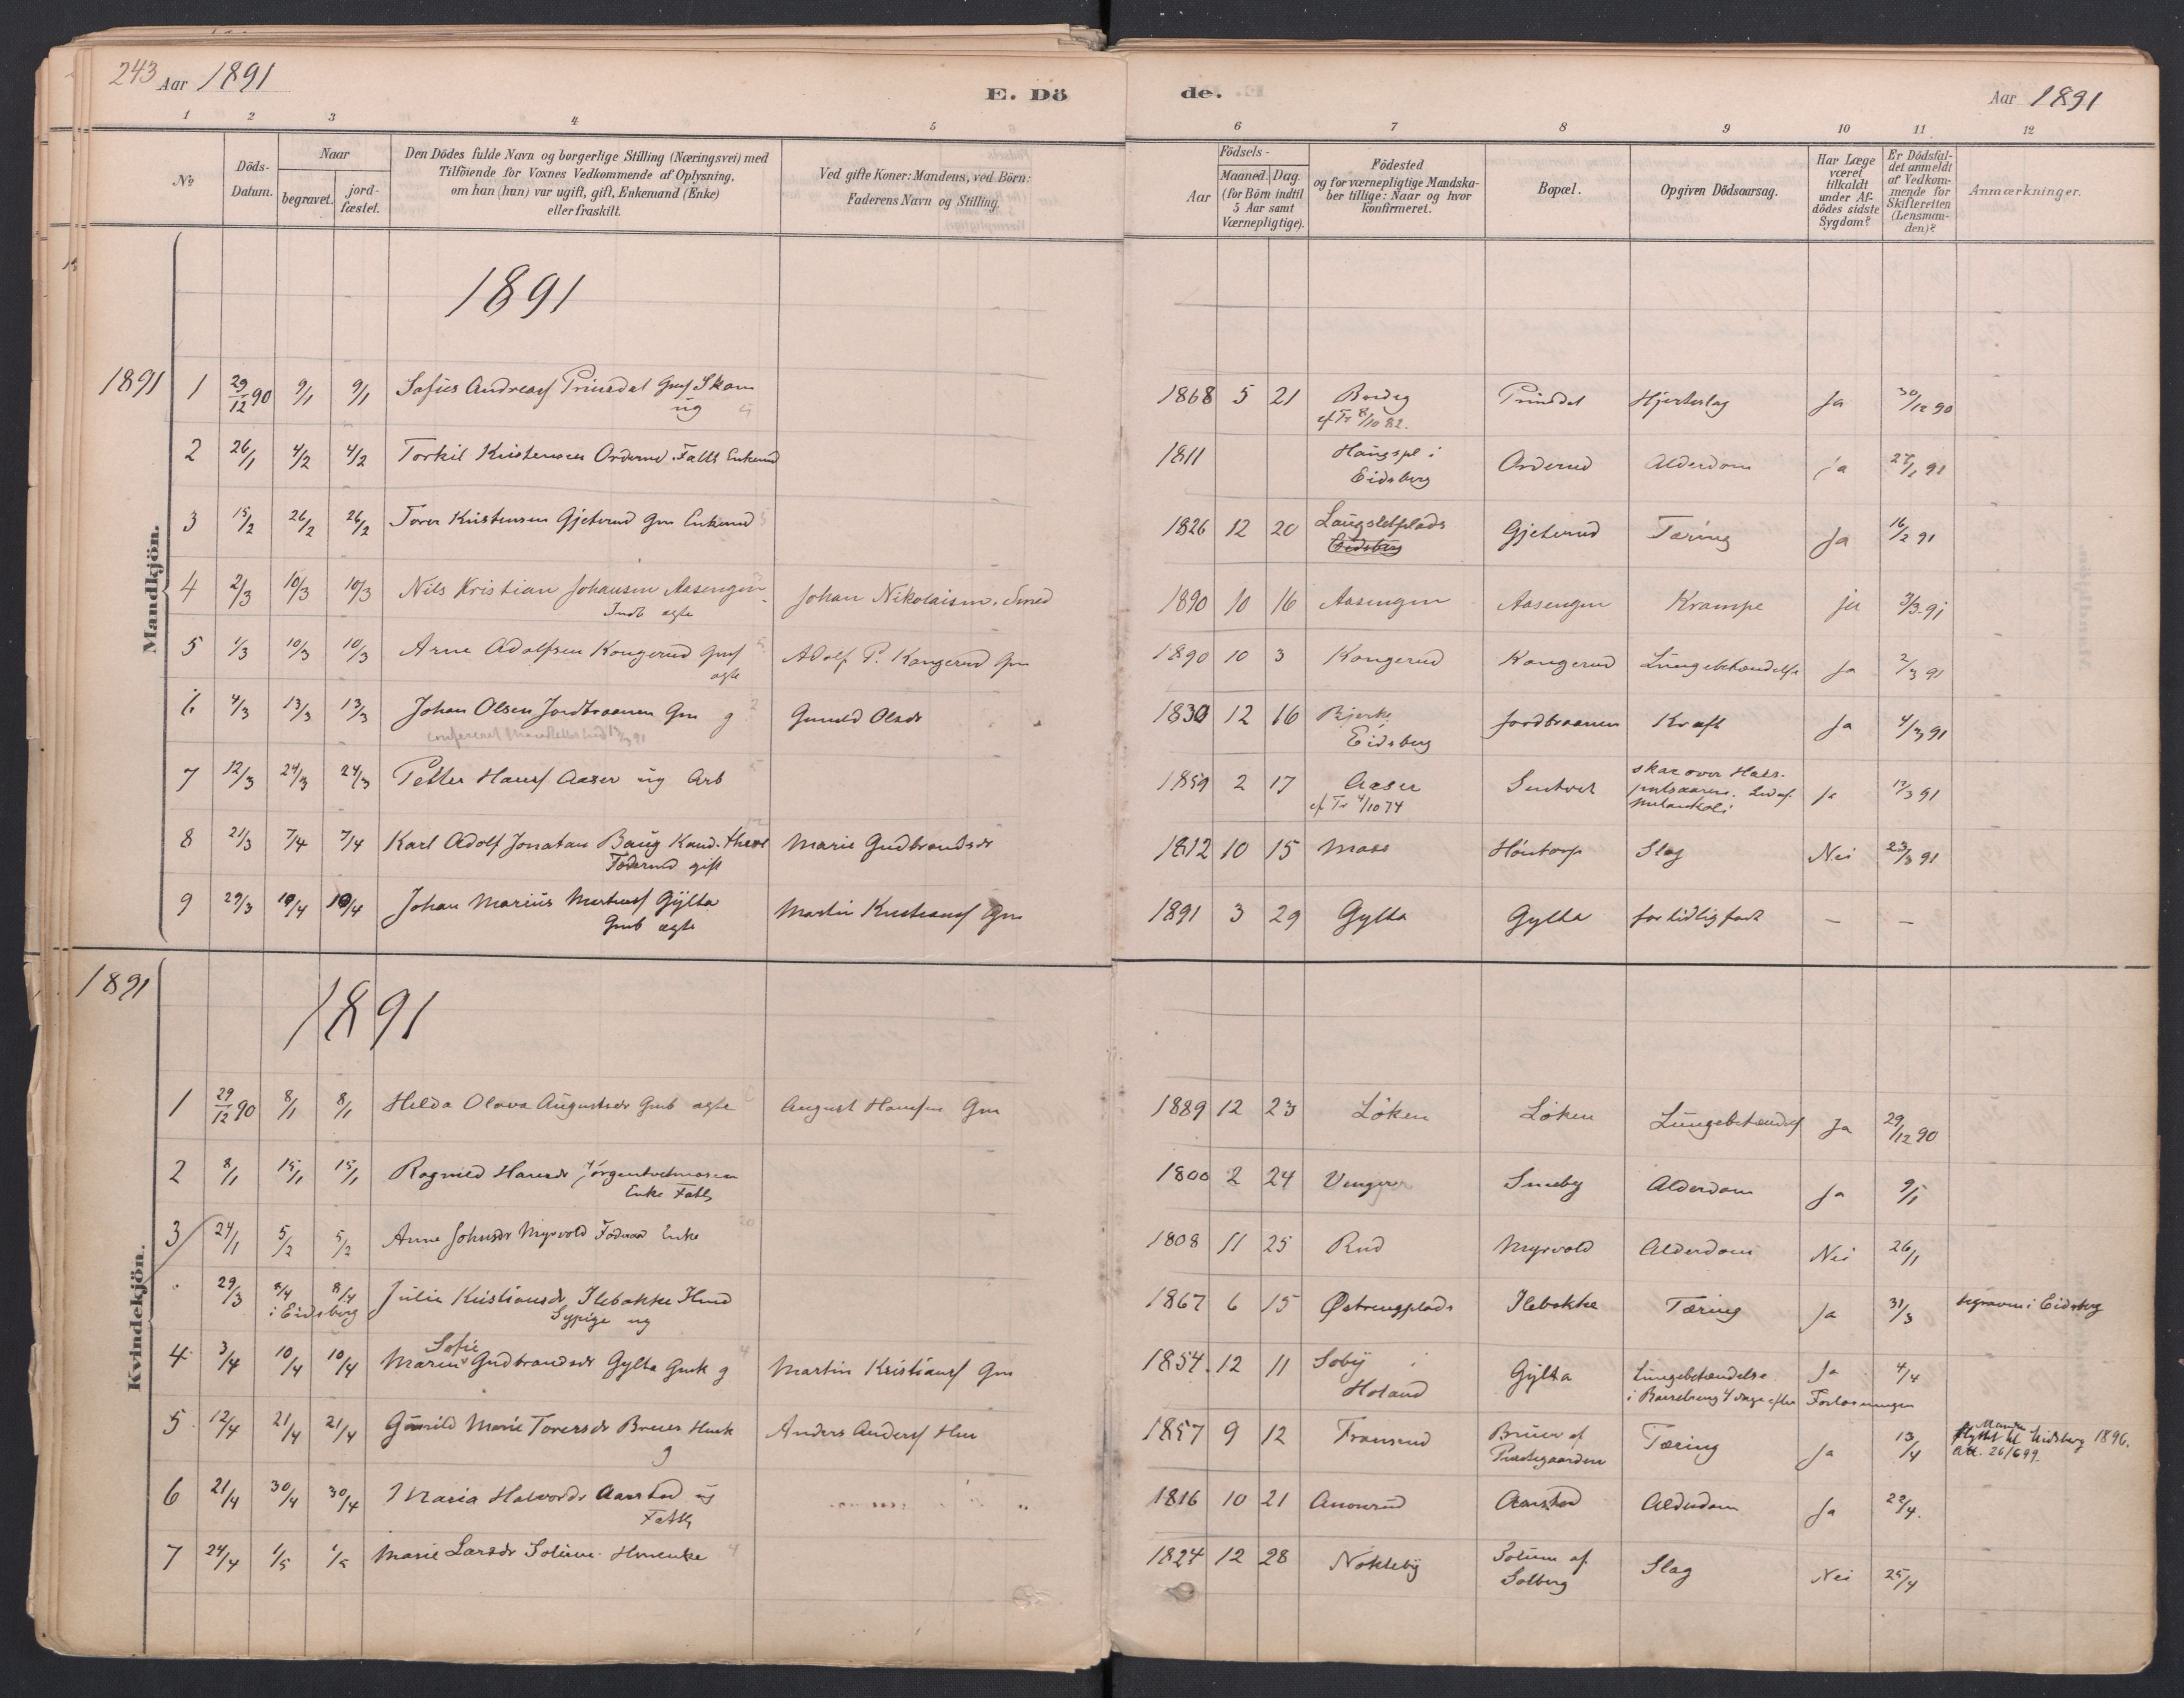 243 Aar 1891
E. Dö
de.
Aar 1891
1 2 3 4 5 6 7 8 9 10 11 12
№
Döds-
Datum.
Naar
begravet.
jord-
fæstet.
Den Dödes fulde Navn og borgerlige Stilling (Næringsvei) med
Tilföiende for Voxnes Vedkommende af Oplysning,
om han (hun) var ugift, gift, Enkemand (Enke)
eller fraskilt.
Ved gifte Koner: Mandens, ved Börn:
Faderens Navn og Stilling.
Födsels-
Aar
Maaned. Dag.
(for Börn indtil
5 Aar samt
Værnepligtige).
Födested
og for værnepligtige Mandska-
ber tillige: Naar og hvor
konfirmeret.
Bopæl.
Opgiven Dödsaarsag.
Har Læge
været
tilkaldt
under Af-
dödes sidste
Sygdom?
Er Dödsfal-
det anmeldt
af Vedkom-
mende for
Skifteretten
(Lensman-
den)?
Anmærkninger.
Mandkjön.
1891
1891 1 29/12 90 9/1 9/1 Sofius Andreas Prinsdal Skom 1868 5 21 Prinsdal Hjerteslag Ja 30/12 90
ug cf Tr 8/10 82.
2 26/1 4/2 4/2 Torkil Kristensen Orderud Fatt Enkem 1811 Haugspl i Orderud Alderdom ja 27/1 91
Eidsberg
3 15/2 26/2 26/2 Torer Kristensen Gjeterud Gm Enkemd 1826 12 20 Laugsletplads Gjeterud Tæring Ja 16/2 91
Eidsberg
4 2/3 10/3 10/3 Nils Kristian Johansen Aasengen Johan Nikolaisen, Smed 1890 10 16 Aasengen Aasengen Krampe ja 3/3 91
Indb ægte
5 1/3 10/3 10/3 Arne Adolfsen Kongerud Adolf P. Kongerud Gm 1890 10 3 Kongerud Kongerud Lungebetændelse Ja 2/3 91
ægte
6 4/3 13/3 13/3 Johan Olsen Jordbraaten Gm g Gunild Olsdr 1830 12 16 Bjerke Jordbraaten Kræft Ja 4/3 91
Eidsberg
7 12/3 24/3 24/3 Petter Hansf Aaser ug Arb 1859 2 17 Aaser skar over Hals- Ja 12/3 91
cf Tr 4/10 74 pulsaaren. Led af
melankoli
8 21/3 7/4 7/4 Karl Adolf Jonatan Baug Kand. theol Marie Gudbrandsdr 1812 10 15 Moss Slag Nei 23/3 91
Föderaad gift
9 29/3 10/4 10/4 Johan Marius Martinsf Gylta Martin Kristiansf Gm 1891 3 29 Gylta Gylta for tidlig födt — —
Gmb ægte
Kvindekjön.
1891
1891
1 29/12 90 8/1 8/1 Hilda Olava Augustsdr Gmb ægte August Hansen Gm 1889 12 23 Löken Löken Lungebetændelse Ja 29/12 90
2 8/1 15/1 15/1 Ragnild Hansdr Jörgentvetmosen 1800 2 24 Venger Smeby Alderdom Ja 9/1
Enke Fattl
3 24/1 5/2 5/2 Anne Johnsdr Myrvold Föderaad Enke 1808 11 25 Rud Myrvold Alderdom Nei 26/1
29/3 8/4 8/4 Julie Kristiansdr Ilebakke Hmd 1867 6 15 Østrengplads Ilebakke Tæring Ja 31/3 begraven i Eidsberg
i Eidsberg Sypige ug
Sofie
4 3/4 10/4 10/4 Marin Gudbrandsdr Gylta Gmk g Martin Kristiansf Gm 1854. 12 11 Soby i Gylta Lungebetændelse Ja 4/4
Holand i Barselseng 4 dage efter Forlösningen
5 12/4 21/4 21/4 Gunild Marie Torersdr Bruer Hmk Anders Andersf Hm 1857 9 12 Fransrud Bruer af Tæring Ja 13/4 Manden flyttet til Eidsberg 1896.
g Præstegaarden Att. 26/6 99.
6 21/4 30/4 30/4 Maria Halvorsdr Aarstad ug 1816 10 21 Aarstad Alderdom Ja 22/4.
Fattl
7 24/4 1/5 1/5 Marie Larsdr Solum Hmenke 1824 12 28 Nökleby Solum af Slag Nei 25/4
Solberg